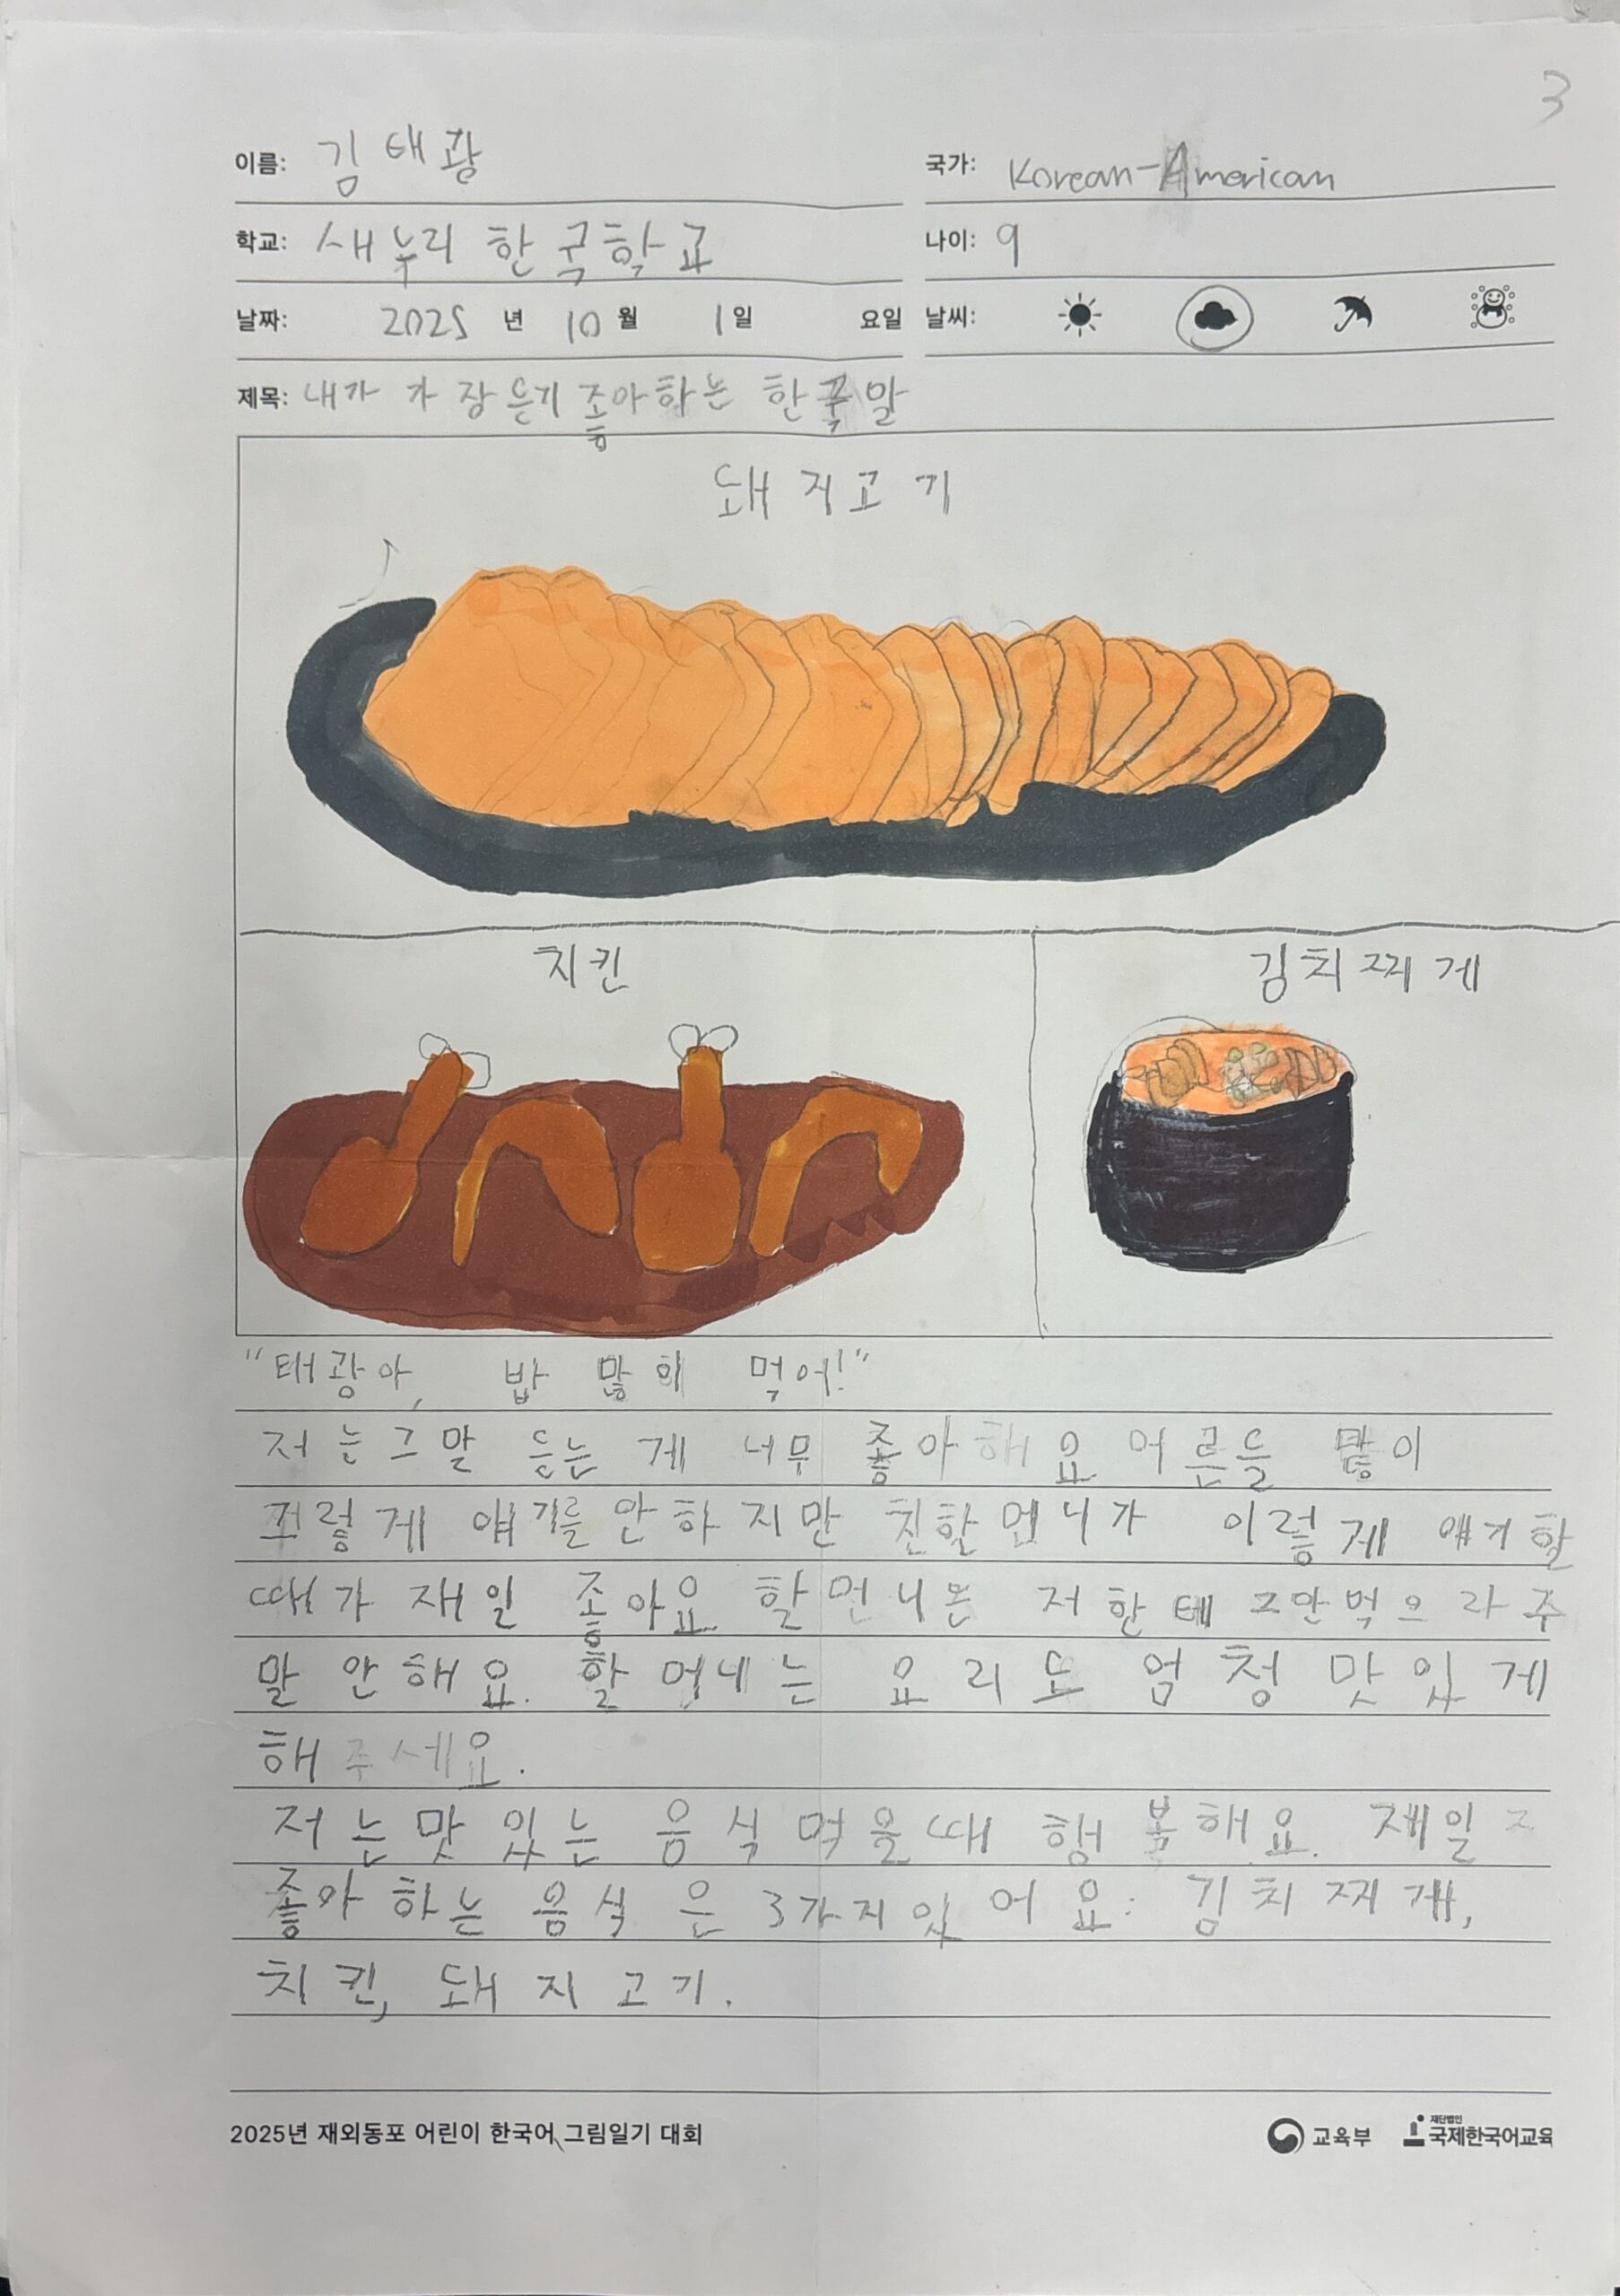 3
이름: 김태광 국가: Korean-American
학교: 새누리 한국학교 나이: 9
날짜: 2025 년 10 월 1 일 요일 날씨:
제목: 내가 가장 듣기 좋아하는 한국말
돼지고기
치킨 김치찌게
"태광아, 밥 많이 먹어!"
저는 그말 듣는 게 너무 좋아해요 어른들 많이
저렇게 얘기를 안하지만 친할먼니가 이렇게 얘기할
때가 재일 좋아요. 할먼니는 저한테 그만먹으라
말 안해요. 는 요리도 엄청 맛있게
해주세요.
저는 맛있는 음식 먹을때 행복해요. 제일
좋아하는 음식은 3가지있어요: 김치찌개,
치킨, 돼지고기.
2025년 재외동포 어린이 한국어 그림일기 대회 교육부 재단법인 국제한국어교육